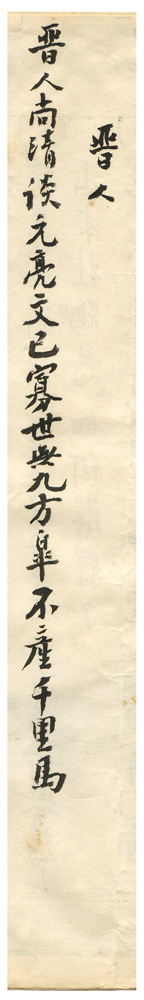 晋人
晋人尚清谈元亮文已寡世無九方皋不产千里馬